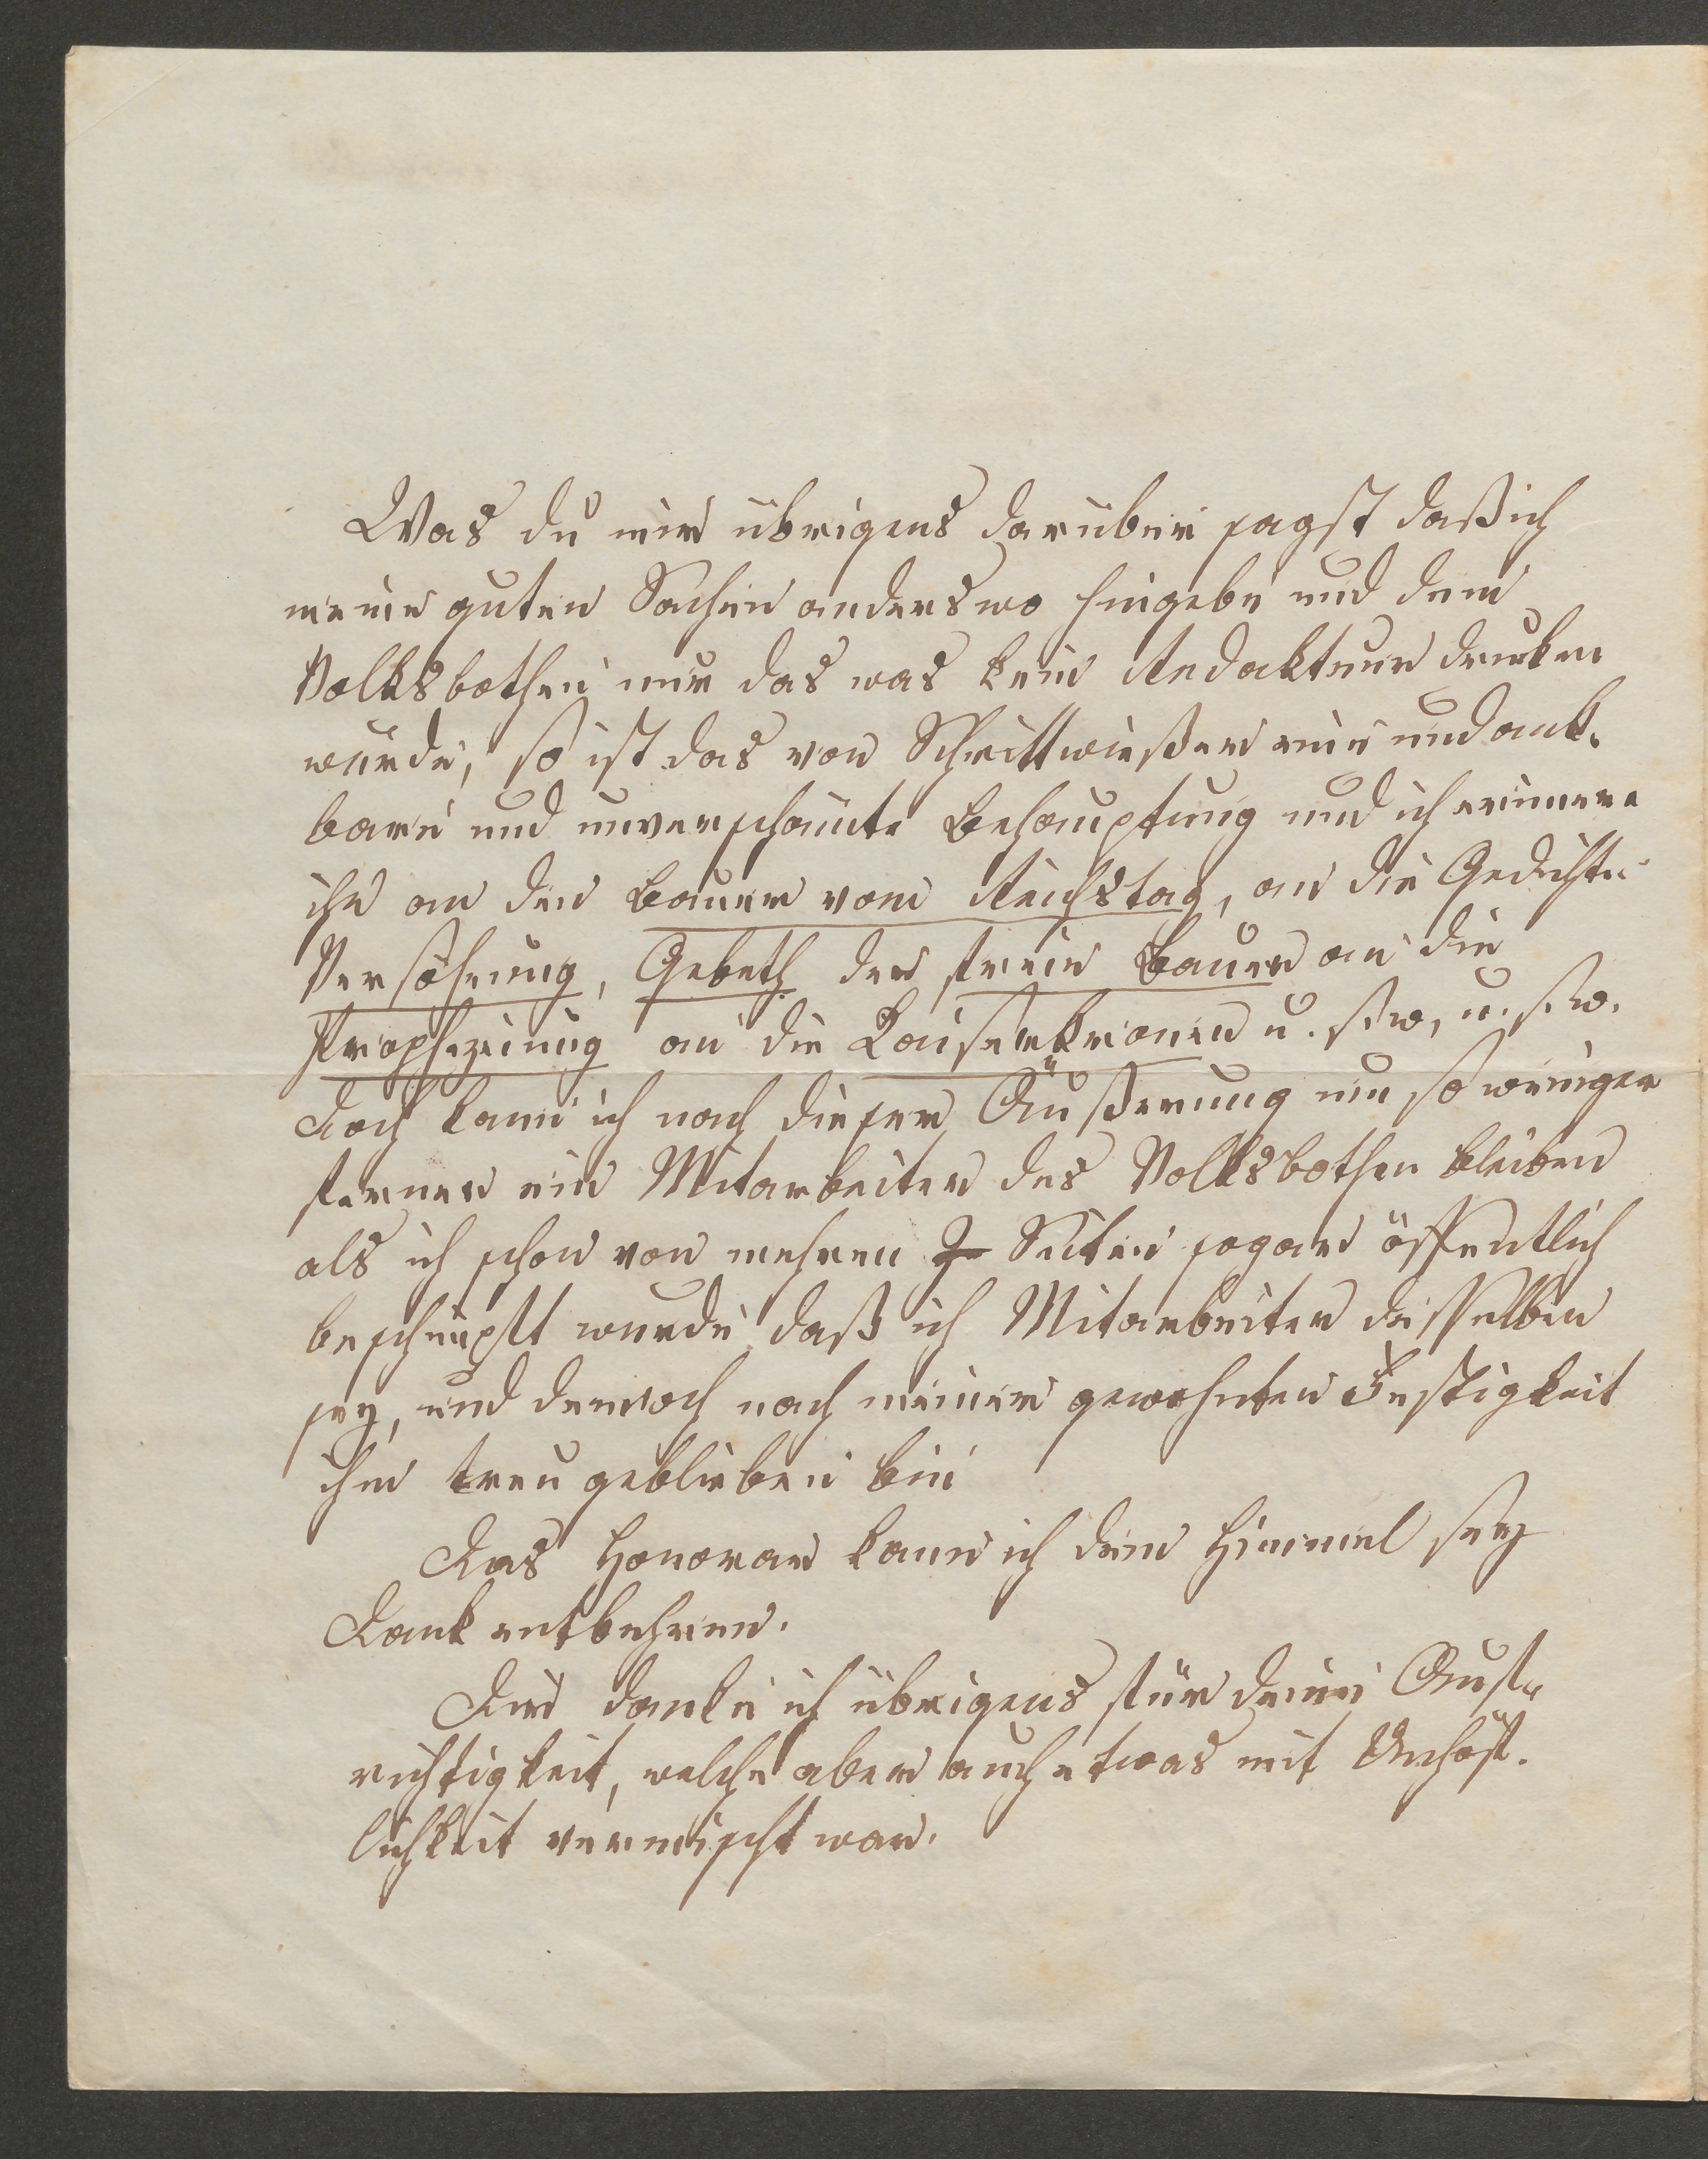 Was du mir übrigens darüber sagst daß ich
meine guten Sachen anderswo hingebe und dem
Volksbothen nur das was kein Redakteur drucken
würde, so ist das von Schrittwießer eine undank-
bare und unverschämte Behauptung und ich erinnere
ihn an den Bauer vom Reichstag, an die Gedichte
Versöhnung, Gebeth der freie Bauer an die
Prophezeiung an die Kaiserkronen u. s. w, u. s. w.
doch kann ich nach dieser Äußerung um so weniger
ferner ein Mitarbeiter des Volksbothen bleiben
als ich schon von mehren Seiten sogar öffentlich
beschimpft wurde daß ich Mitarbeiter desselben
sey, und dennoch nach meiner gewohnten Festigkeit
ihm treu geblieben bin
Das Honorar kann ich dem Himmel sey
Dank entbehren.
Dir danke ich übrigens für deine Auf-
richtigkeit, welche aber auch etwas mit Unhöf-
lichkeit vermischt war.